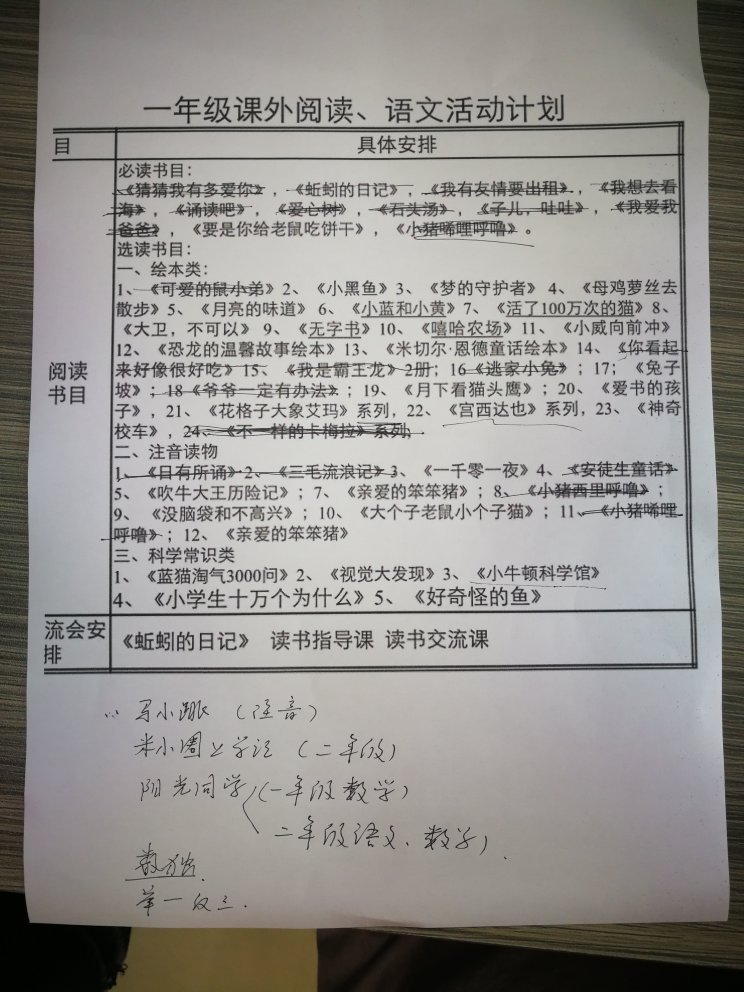 一年级课外阅读、语文活动计划
目 具体安排
必读书目：
《猜猜我有多爱你》，《蚯蚓的日记》，《我有友情要出租》，《我想去看
海》，《诵读吧》，《爱心树》，《石头汤》，《子儿，吐吐》，《我爱我
爸爸》，《要是你给老鼠吃饼干》，《小猪唏哩呼噜》。
选读书目：
一、绘本类：
1、《可爱的鼠小弟》2、《小黑鱼》3、《梦的守护者》4、《母鸡萝丝去
散步》5、《月亮的味道》6、《小蓝和小黄》7、《活了100万次的猫》8、
《大卫，不可以》9、《无字书》10、《嘻哈农场》11、《小威向前冲》
12、《恐龙的温馨故事绘本》13、《米切尔·恩德童话绘本》14、《你看起
来好像很好吃》15、《我是霸王龙》2册；16《逃家小兔》；17；《兔子
坡》；18《爷爷一定有办法》；19、《月下看猫头鹰》；20、《爱书的孩
子》，21、《花格子大象艾玛》系列，22、《宫西达也》系列，23、《神奇
校车》，24、《不一样的卡梅拉》系列，
二、注音读物
1、《日有所诵》2、《三毛流浪记》3、《一千零一夜》4、《安徒生童话》
5、《吹牛大王历险记》；7、《亲爱的笨笨猪》；8、《小猪西里呼噜》；
9、《没脑袋和不高兴》；10、《大个子老鼠小个子猫》；11、《小猪唏哩
呼噜》；12、《亲爱的笨笨猪》
三、科学常识类
1、《蓝猫淘气3000问》2、《视觉大发现》3、《小牛顿科学馆》
4、《小学生十万个为什么》5、《好奇怪的鱼》
阅读
书目
流会安
排
《蚯蚓的日记》 读书指导课 读书交流课
马小跳（注音）
米小圈上学记（二年级）
阳光同学（一年级数学）
二年级语文、数学）
数独
举一反三.